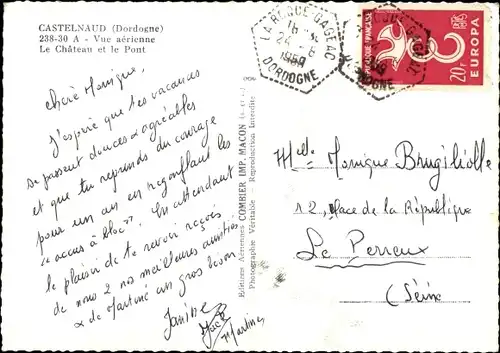 CASTELNAUD (Dordogne)
238-30 A - Vue aérienne
Le Château et le Pont
LA ROQUE-GAGEAC
24 - 8
1959
DORDOGNE
RÉPUBLIQUE FRANÇAISE
20F
POSTES
EUROPA
chère Monique,
J'espère que tes vacances
se passent douces & agréables
et que tu reprends du courage
pour un an en regonflant les
"accus à bloc". En attendant
le plaisir de te revoir reçois
de nous 2 nos meilleures amitiés
& de Martine un gros bisou
Janine
Jack
Martine
Editions Aériennes COMBIER IMP. MACON
Photographie Véritable - Reproduction Interdite
Melle Monique Brugiliolle
12, place de la République
Le Perreux
(Seine)